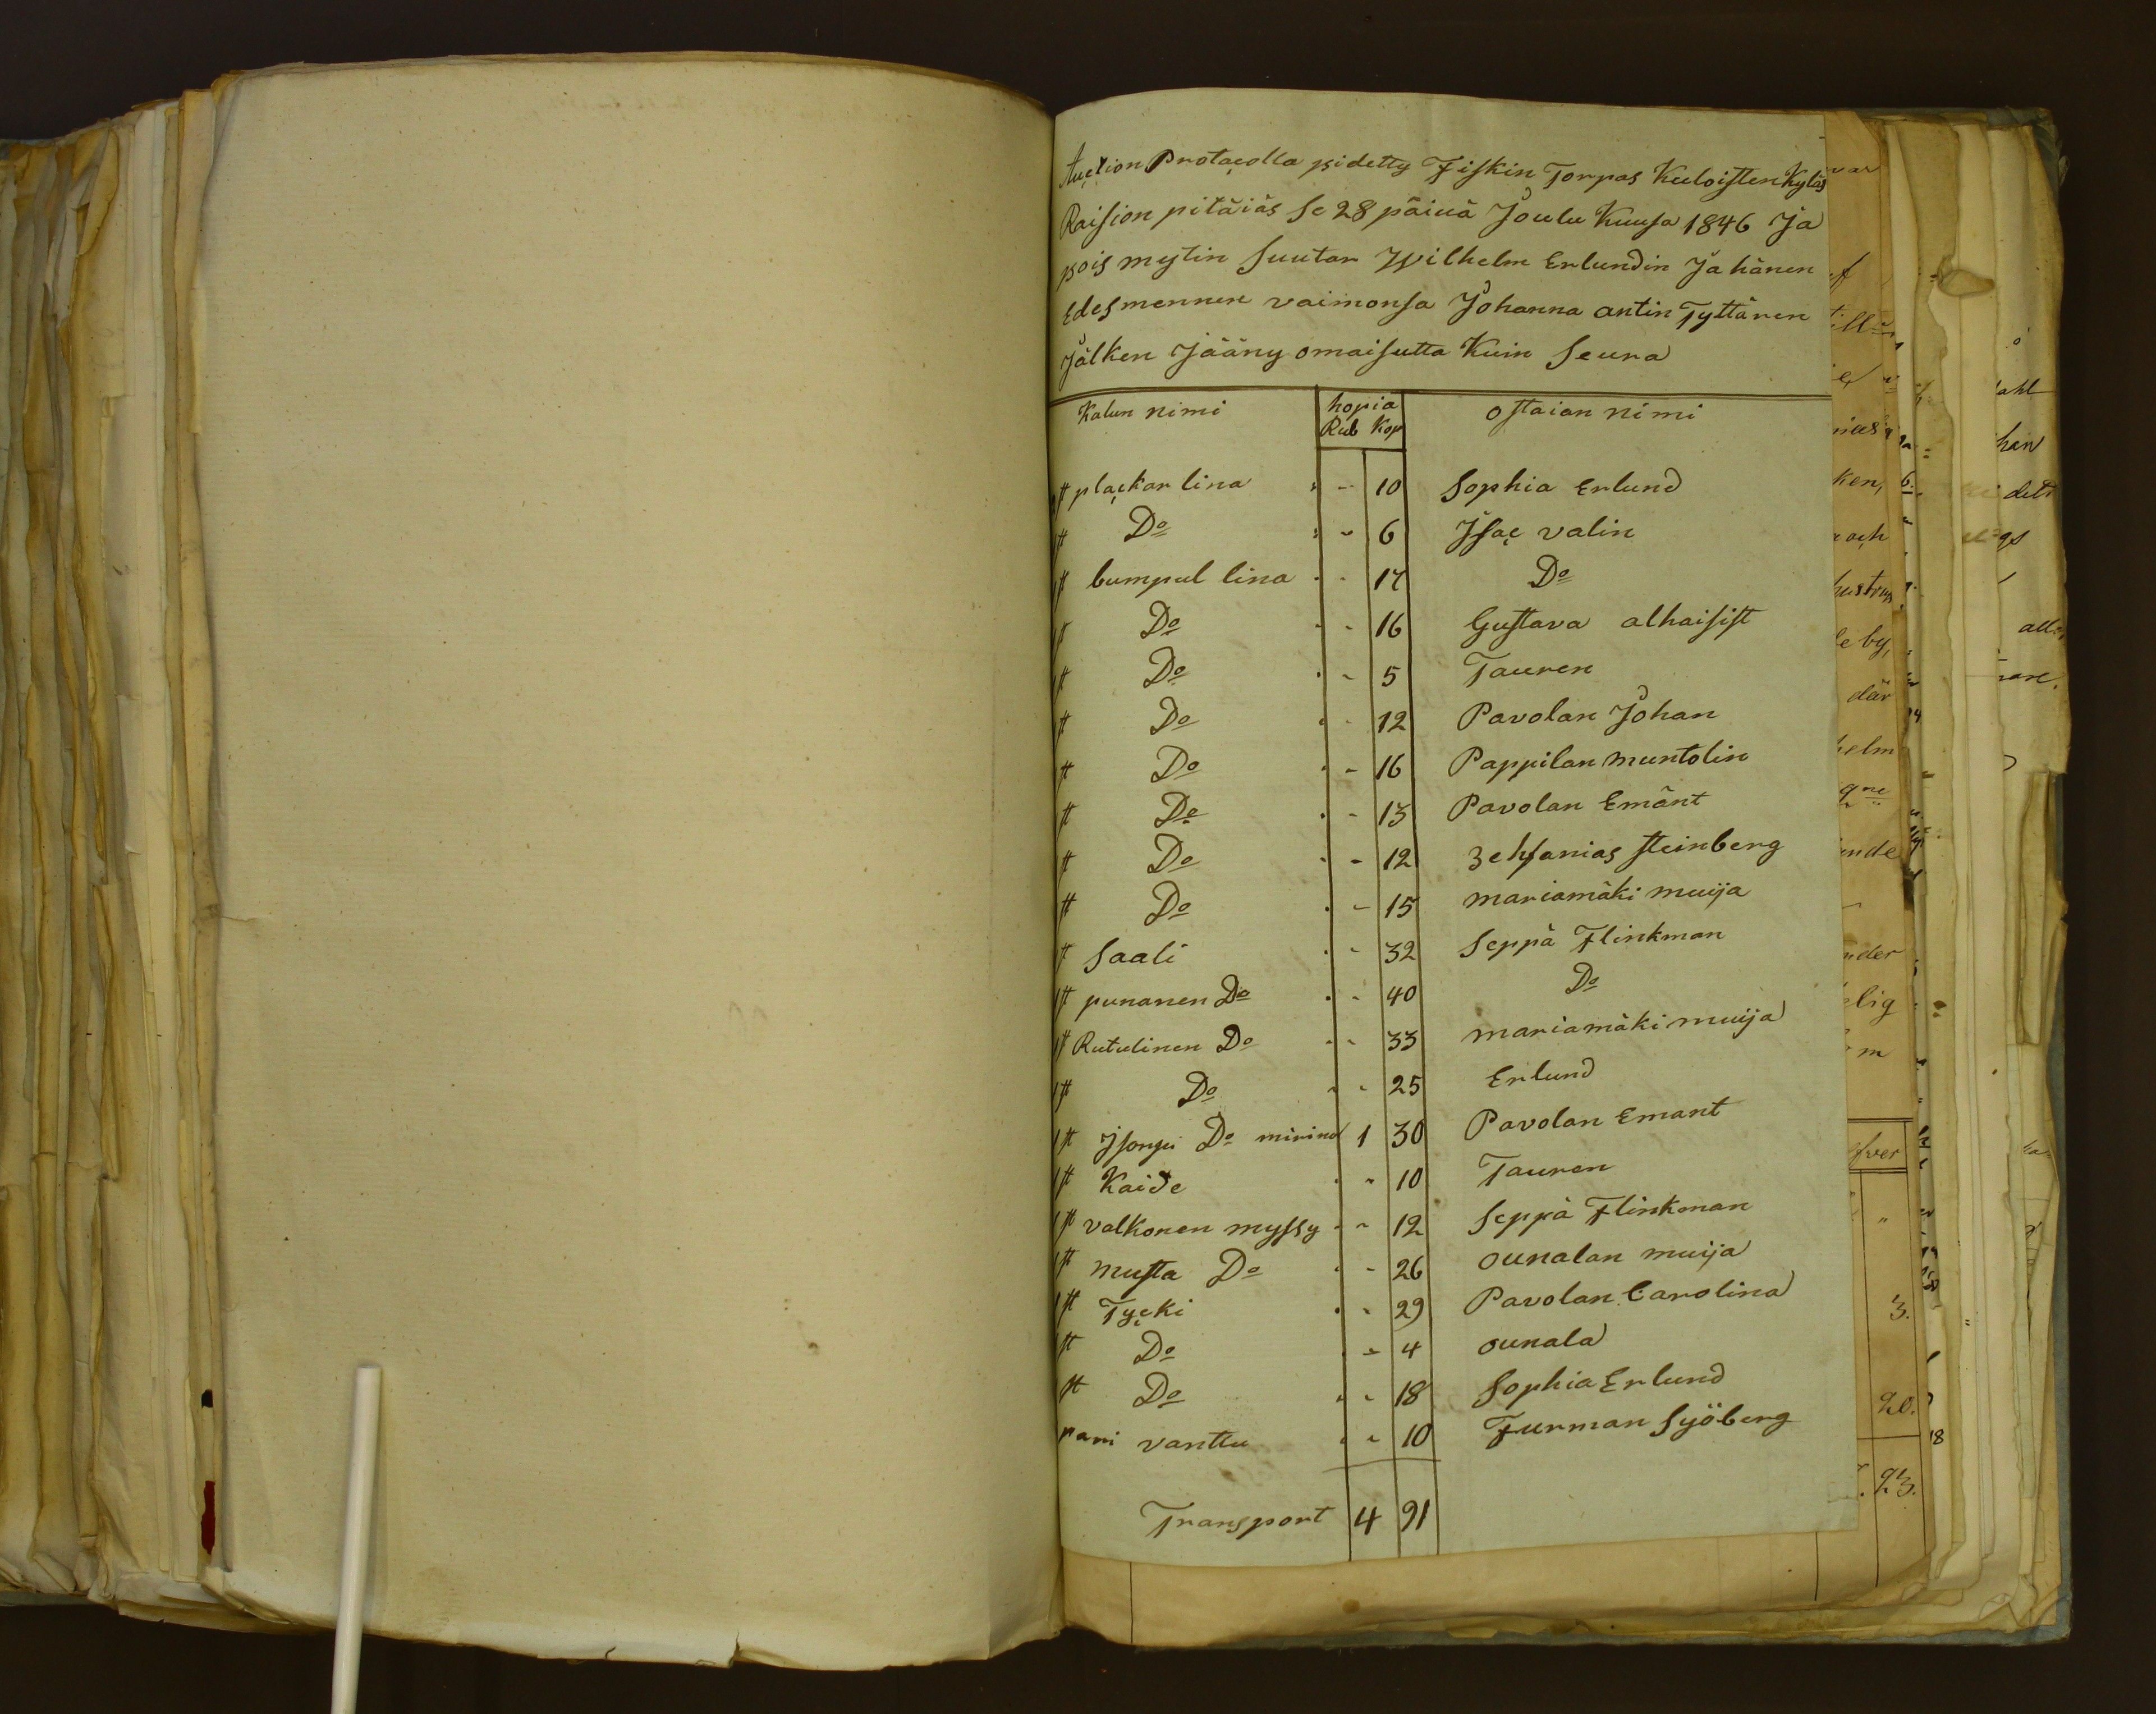 Auction Protacolla pidetty Fiskin Torpas Kuloisten Kyläs
Raision pitäiäs se 28 päiuä Joulu Kuusa 1846 Ja
pois mytin Suutar Wilhelm Erlundin Ja hänen
Edesmennen vaimonsa Johanna antin Tyttären
Jälken Jääny omaisutta Kuin Seura
Kalun nimi hopia ostaian nimi
Rub Kop
st plackar lina " - 10 Sophia Erlund
st Do " - 6 Jsac valin
1 st bumpul lina - - 17 Do
1 st Do - - 16 Gustava alhaisist
st Do - - 5 Tauren
st Do - - 12 Pavolan Johan
st Do - - 16 Pappilan muntolin
st Do - - 13 Pavolan Emänt
st Do - - 12 Zehfanias steinberg
st Do - - 15 mariamäki muija
st Saali - - 32 Seppä Flinkman
1 st punanen Do - - 40 Do
1 st Rutulinen Do - - 33 mariamäki muija
1 st Do - - 25 Erlund
1 st Jsompi Do 1 30 Pavolan Emant
1 st Kaide - - 10 Tauren
1 st valkonen myssy - - 12 Seppä Flinkman
1 st musta Do - - 26 ounalan muija
1 st Tycki - - 29 Pavolan Carolina
st Do - - 4 ounala
st Do - - 18 Sophia Erlund
pari vanttu - - 10 Furman Sjöberg
Transport 4 91
var
ken,
och
hustrus
le by,
där
helm
qne
ande
nder
elig
m
3.
20.
93.
18
ahl
han
dets
gs